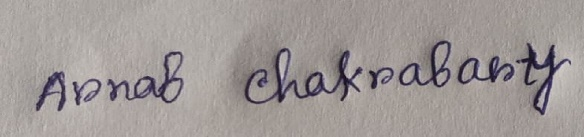 Arnab Chakrabarty